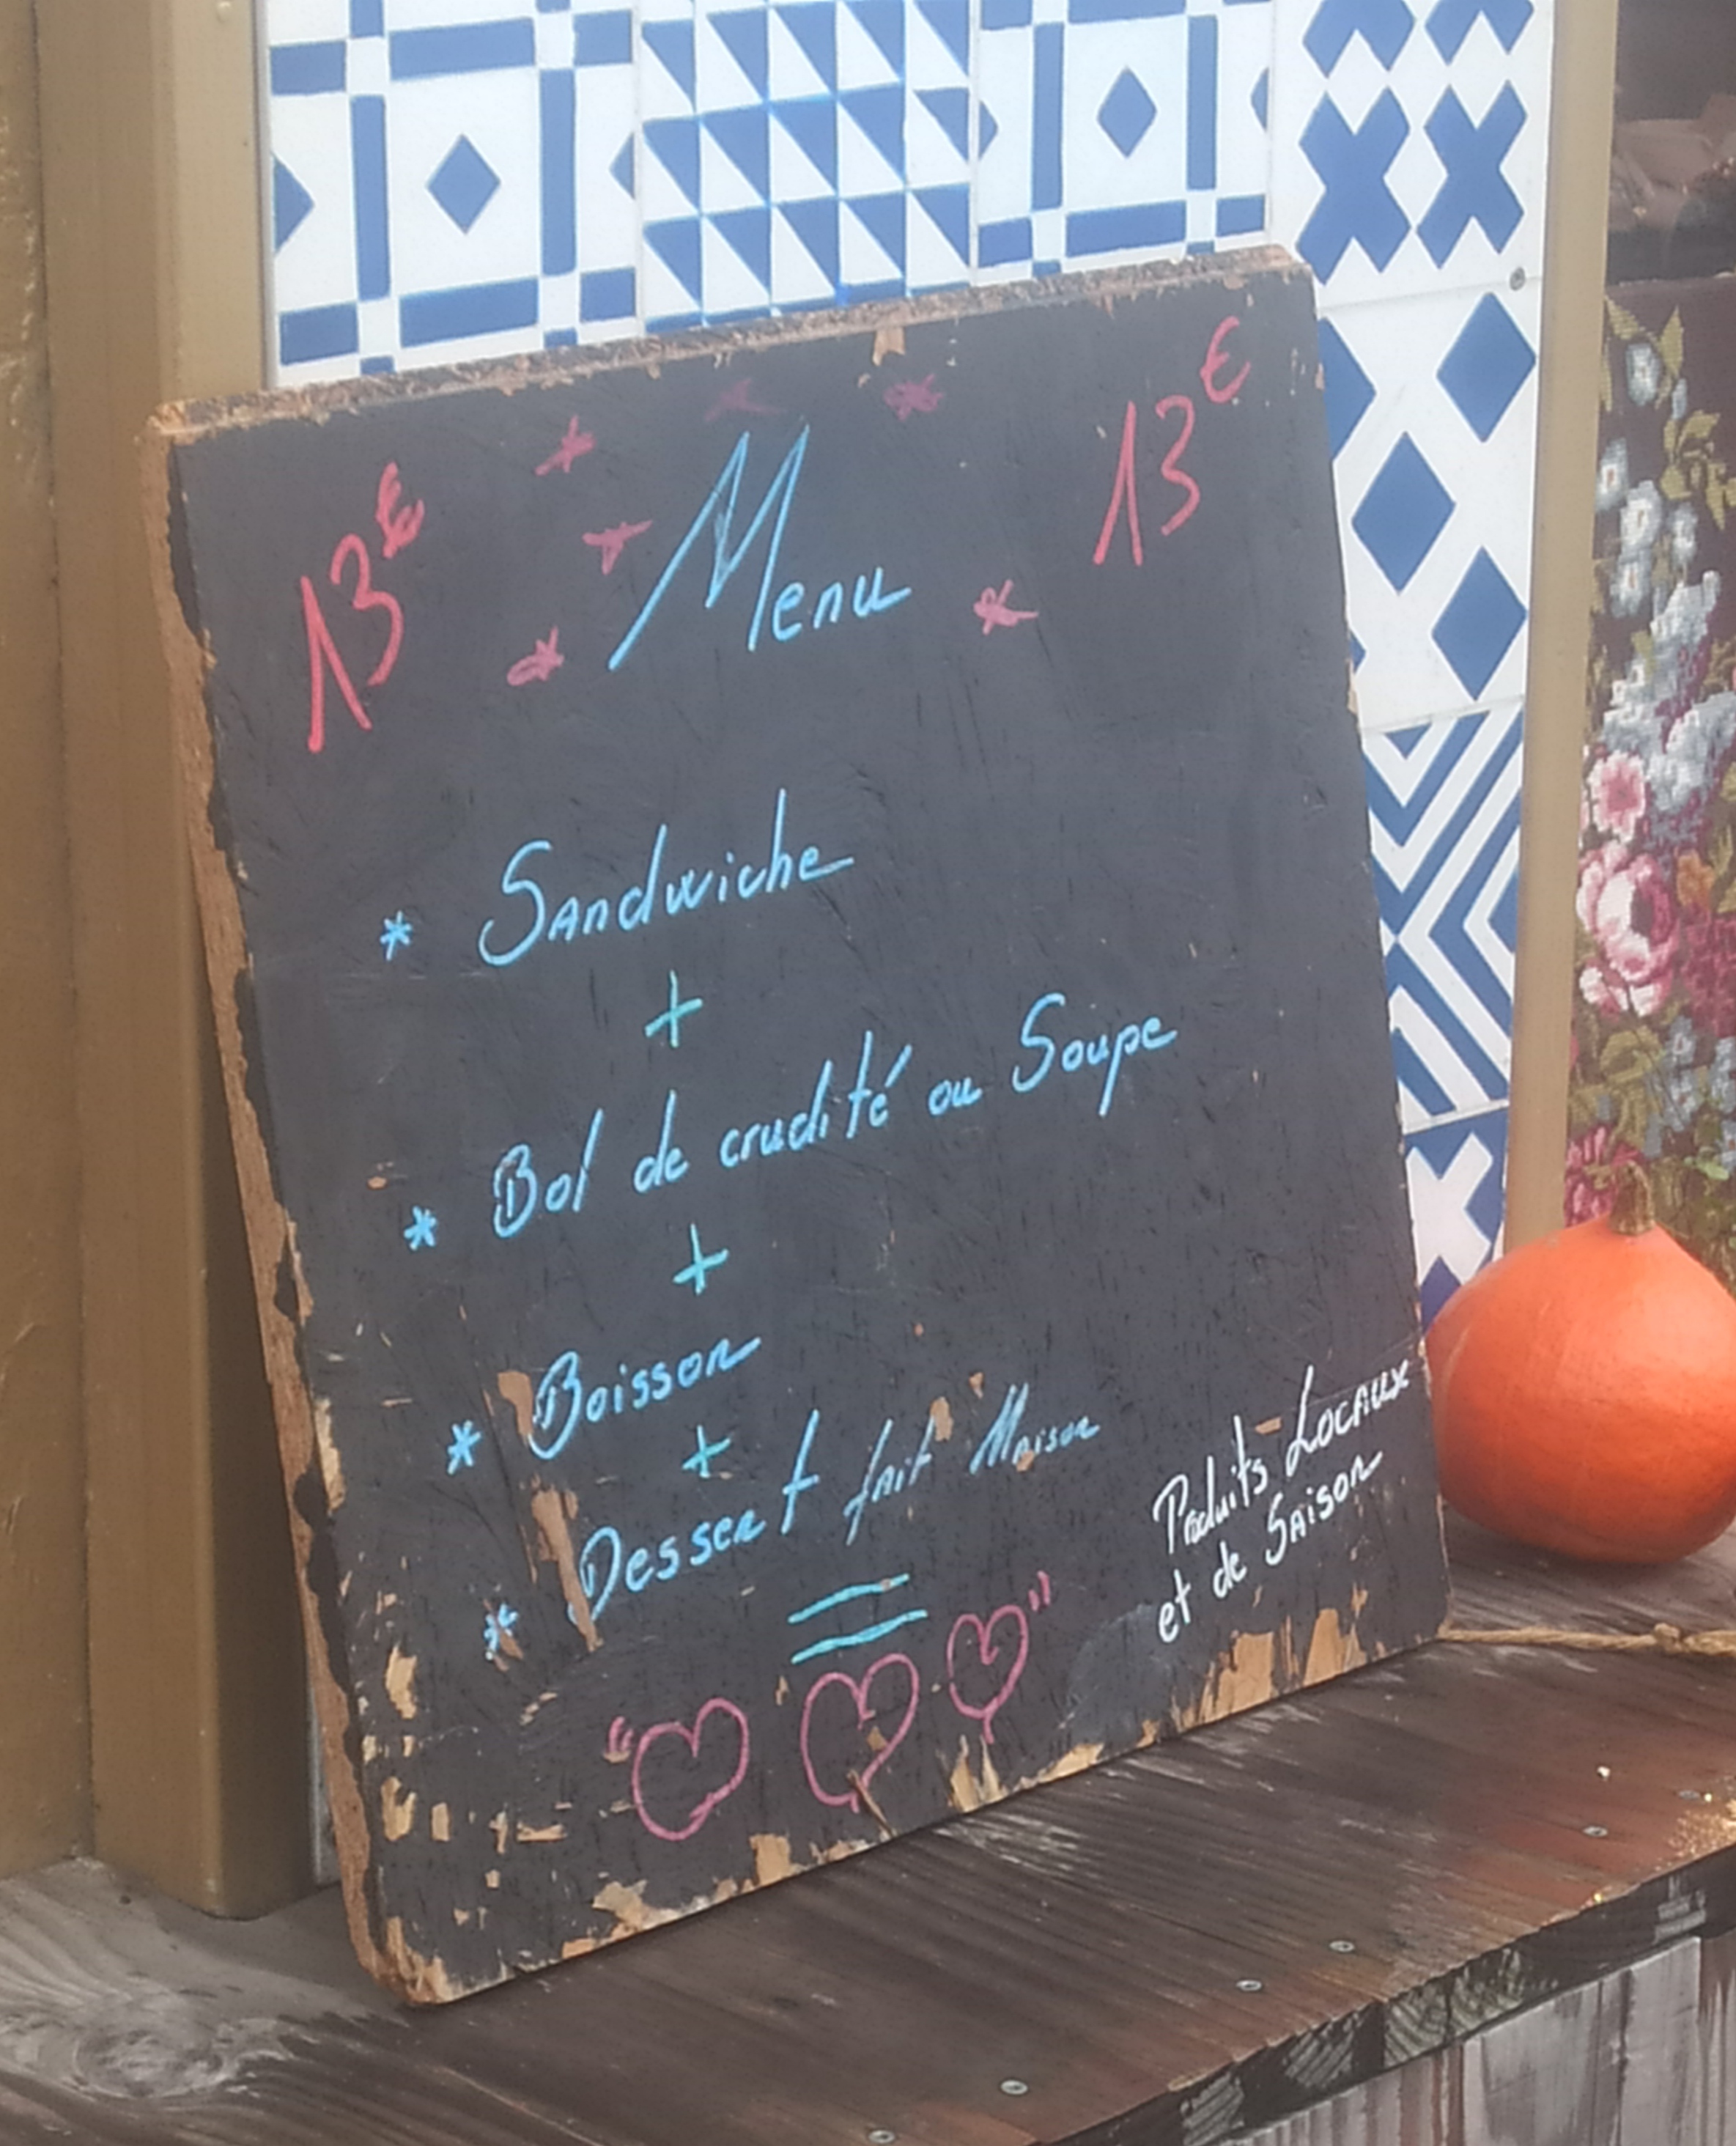 13€ Menu 13€
* Sandwiche
+
* Bol de crudité ou Soupe
+
* Boisson
+
* Dessert fait Maison
=
" "
Produits Locaux
et de Saison